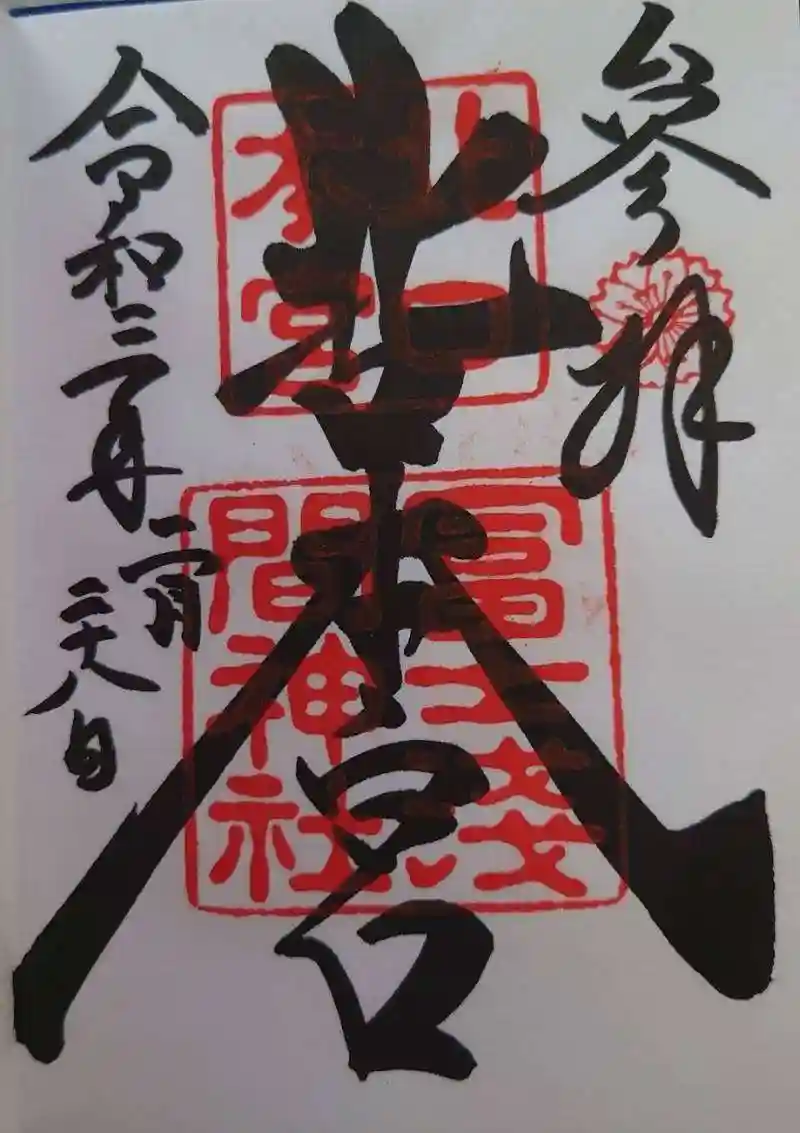 參拝
北口本宮
北口
本宮
冨士淺
間神社
令和三年
二月
二十八日